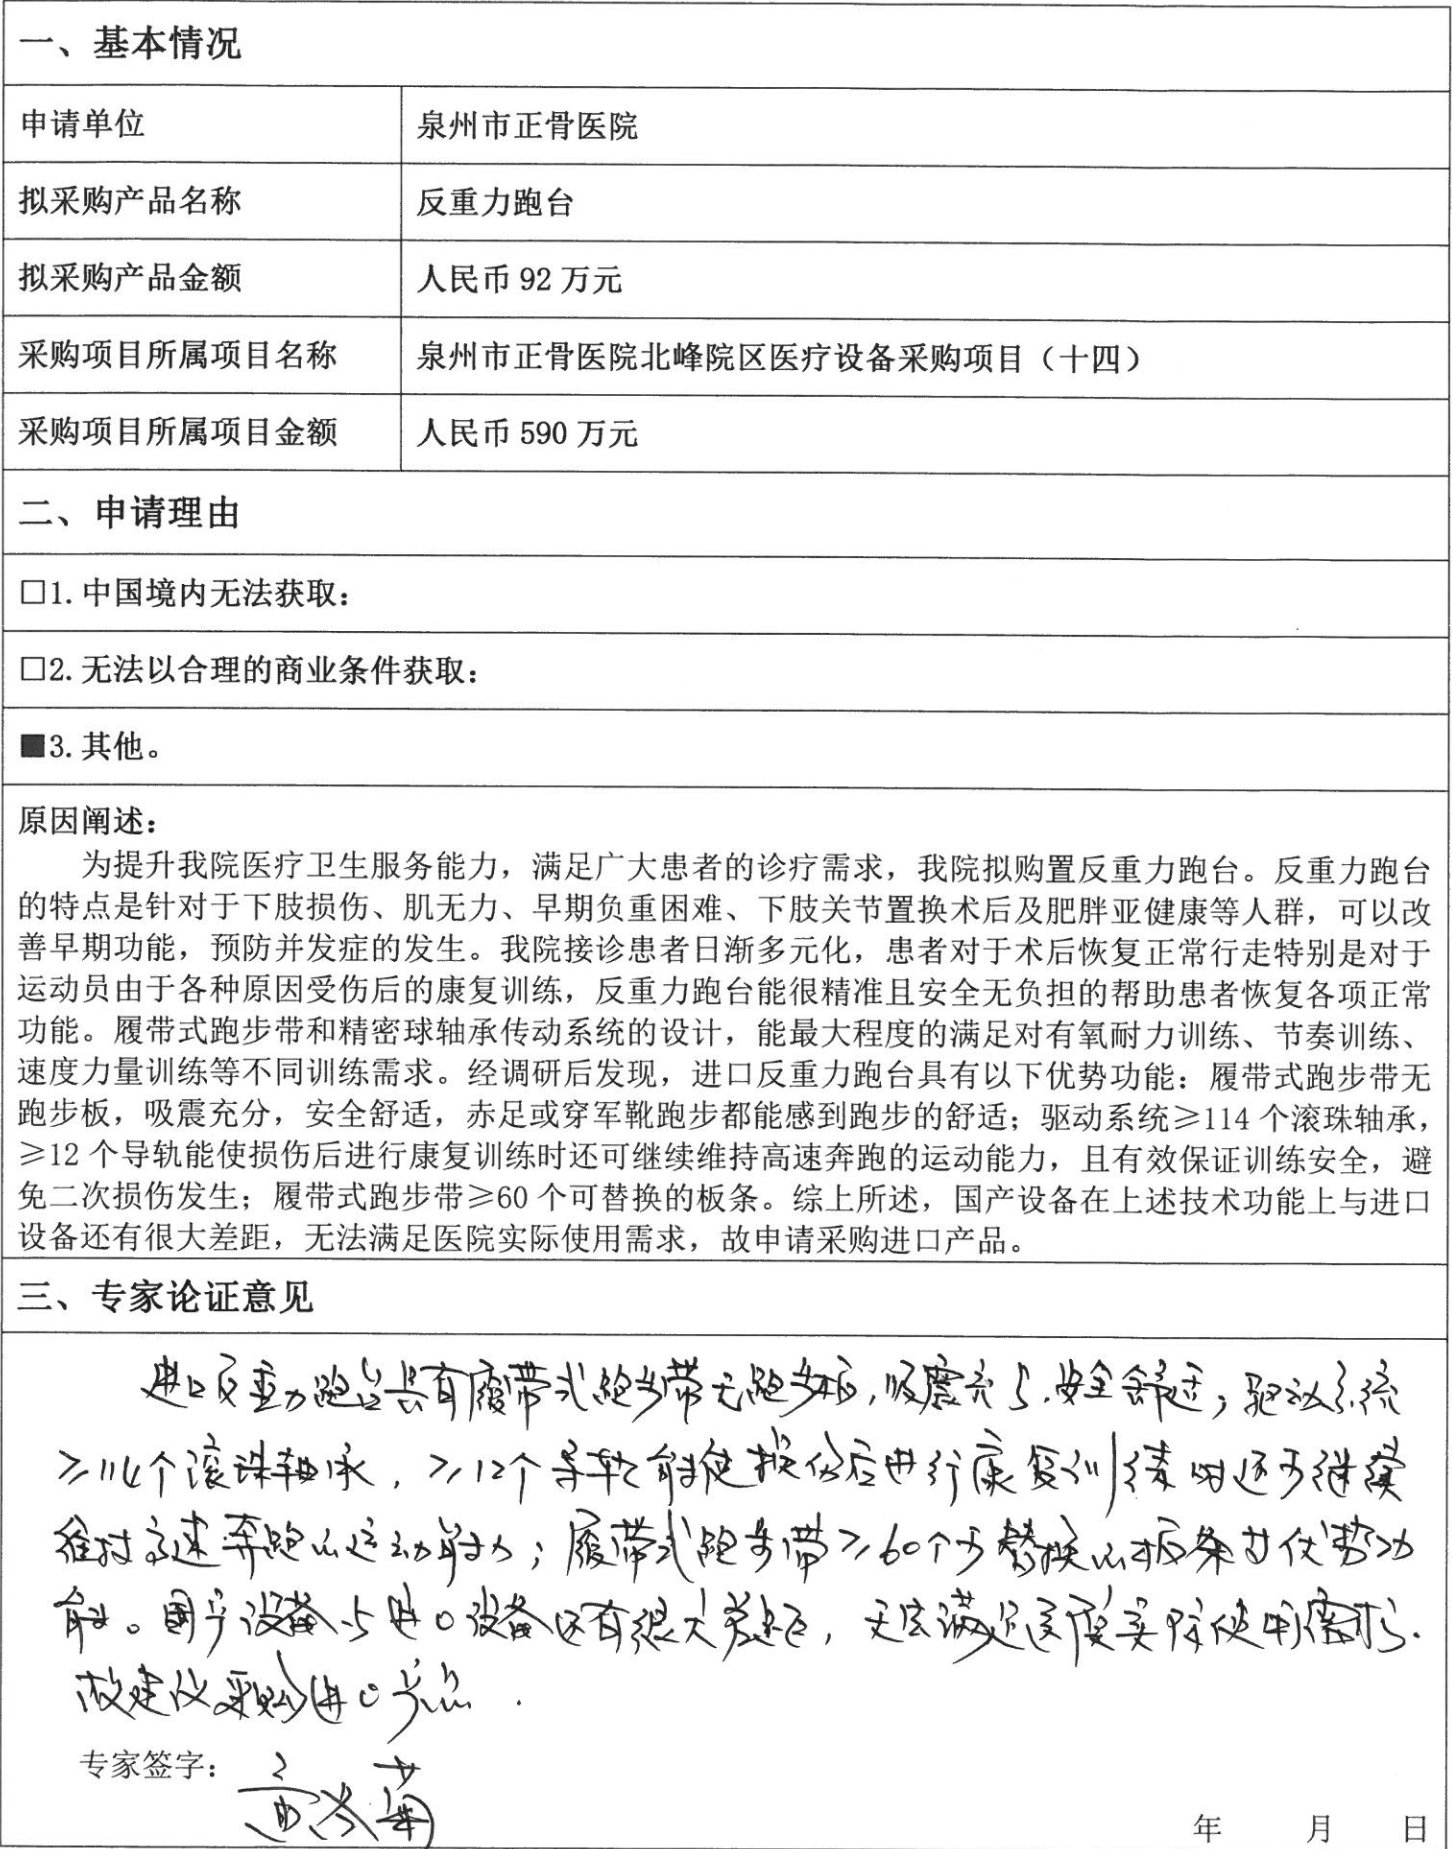 一、基本情况
申请单位 泉州市正骨医院
拟采购产品名称 反重力跑台
拟采购产品金额 人民币 92 万元
采购项目所属项目名称 泉州市正骨医院北峰院区医疗设备采购项目（十四）
采购项目所属项目金额 人民币 590 万元
二、申请理由
□1. 中国境内无法获取：
□2. 无法以合理的商业条件获取：
■3. 其他。
原因阐述：
为提升我院医疗卫生服务能力，满足广大患者的诊疗需求，我院拟购置反重力跑台。反重力跑台
的特点是针对于下肢损伤、肌无力、早期负重困难、下肢关节置换术后及肥胖亚健康等人群，可以改
善早期功能，预防并发症的发生。我院接诊患者日渐多元化，患者对于术后恢复正常行走特别是对于
运动员由于各种原因受伤后的康复训练，反重力跑台能很精准且安全无负担的帮助患者恢复各项正常
功能。履带式跑步带和精密球轴承传动系统的设计，能最大程度的满足对有氧耐力训练、节奏训练、
速度力量训练等不同训练需求。经调研后发现，进口反重力跑台具有以下优势功能：履带式跑步带无
跑步板，吸震充分，安全舒适，赤足或穿军靴跑步都能感到跑步的舒适；驱动系统≥114 个滚珠轴承，
≥12 个导轨能使损伤后进行康复训练时还可继续维持高速奔跑的运动能力，且有效保证训练安全，避
免二次损伤发生；履带式跑步带≥60 个可替换的板条。综上所述，国产设备在上述技术功能上与进口
设备还有很大差距，无法满足医院实际使用需求，故申请采购进口产品。
三、专家论证意见
进口反重力跑台具有履带式跑步带无跑步板，吸震充分，安全舒适；驱动系统
≥114个滚珠轴承，≥12个导轨能使损伤后进行康复训练时还可继续
维持高速奔跑的运动能力；履带式跑步带≥60个可替换的板条等优势功
能。国产设备与进口设备还有很大差距，无法满足医院实际使用需求，
故建议采购进口产品．
专家签字：
年 月 日